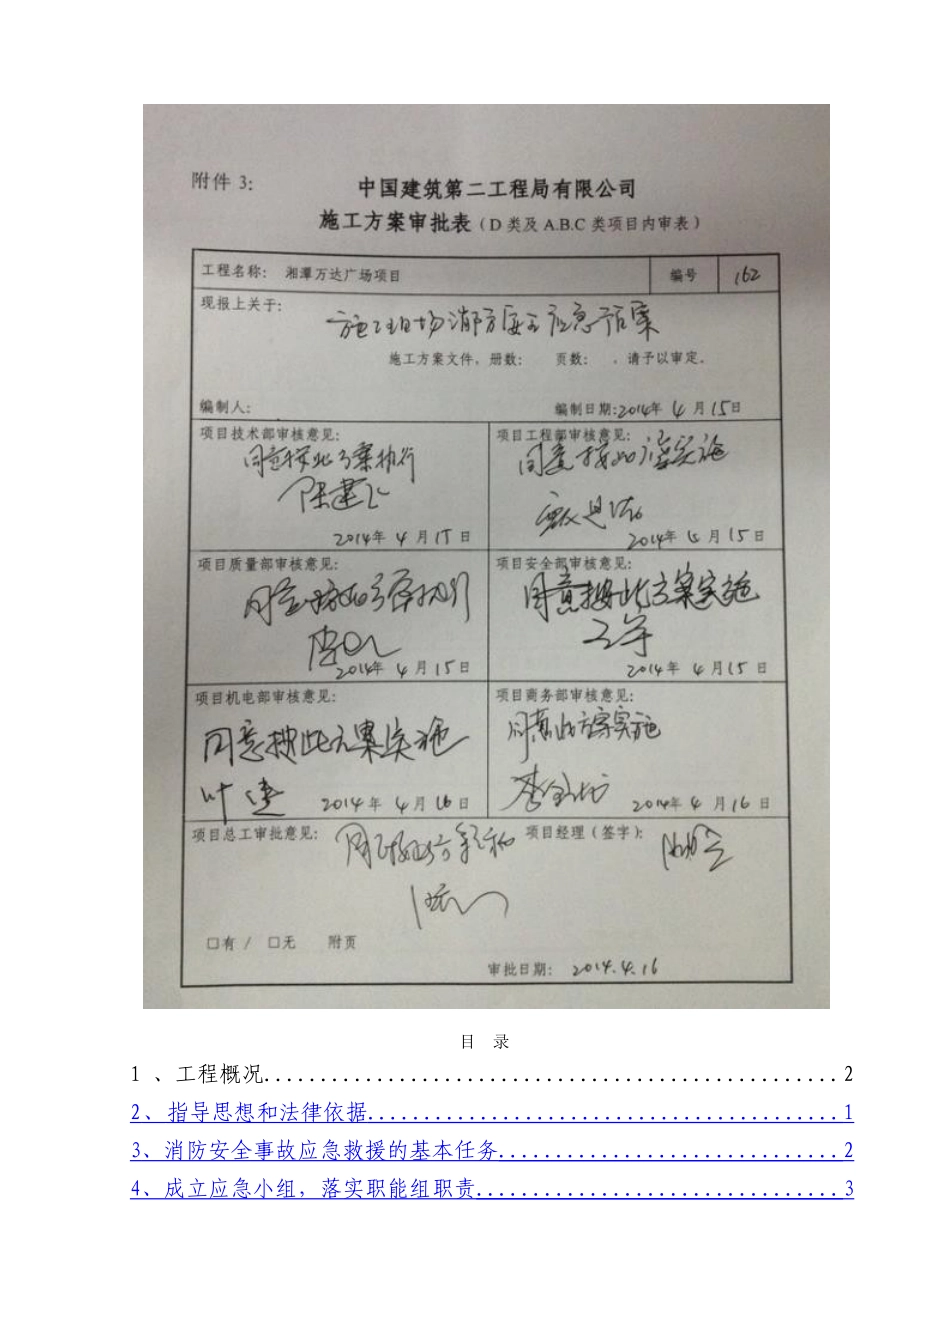 附件 3:
中国建筑第二工程局有限公司
施工方案审批表（D 类及 A.B.C 类项目内审表）
工程名称: 湘潭万达广场项目 编号 162
现报上关于:
施工现场消防安全应急预案
施工方案文件，册数: 页数: ，请予以审定。
编制人: 编制日期:2014年 4 月 15日
项目技术部审核意见: 项目工程部审核意见:
同意按此方案执行 同意按此方案实施
陈建飞
2014年 4 月 15 日 2014年 4 月 15 日
项目质量部审核意见: 项目安全部审核意见:
同意按此方案执行 同意按此方案实施
2014年 4 月 15 日 2014年 4 月 15 日
项目机电部审核意见: 项目商务部审核意见:
同意按此方案实施 同意此方案实施
叶建 2014年 4 月 16 日 2014年 4 月 16 日
项目总工审批意见: 项目经理（签字）:
□有 / □无 附页
审批日期: 2014.4.16
目 录
1 、工程概况...................................................2
2、指导思想和法律依据..........................................1
3、消防安全事故应急救援的基本任务...............................2
4、成立应急小组，落实职能组职责.................................3